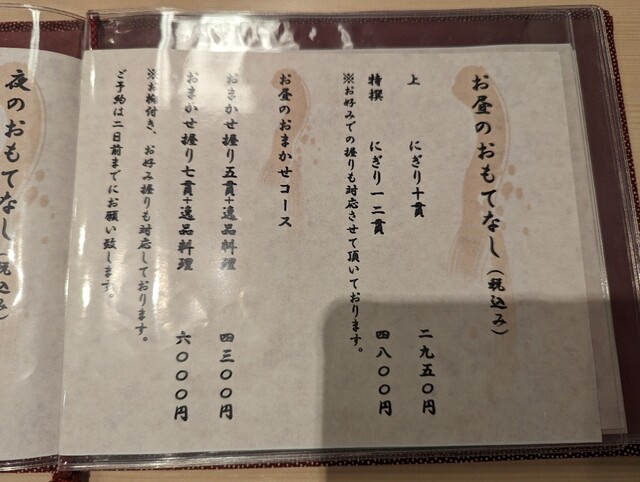 お昼のおもてなし(税込み)
上 にぎり十貫 二九五〇円
特撰 にぎり一二貫 四八〇〇円
※お好みでの握りも対応させて頂いております。
お昼のおまかせコース
おまかせ握り五貫+逸品料理 四三〇〇円
おまかせ握り七貫+逸品料理 六〇〇〇円
※お椀付き、お好み握りも対応しております。
ご予約は二日前までにお願い致します。
夜のおもてなし(税込み)